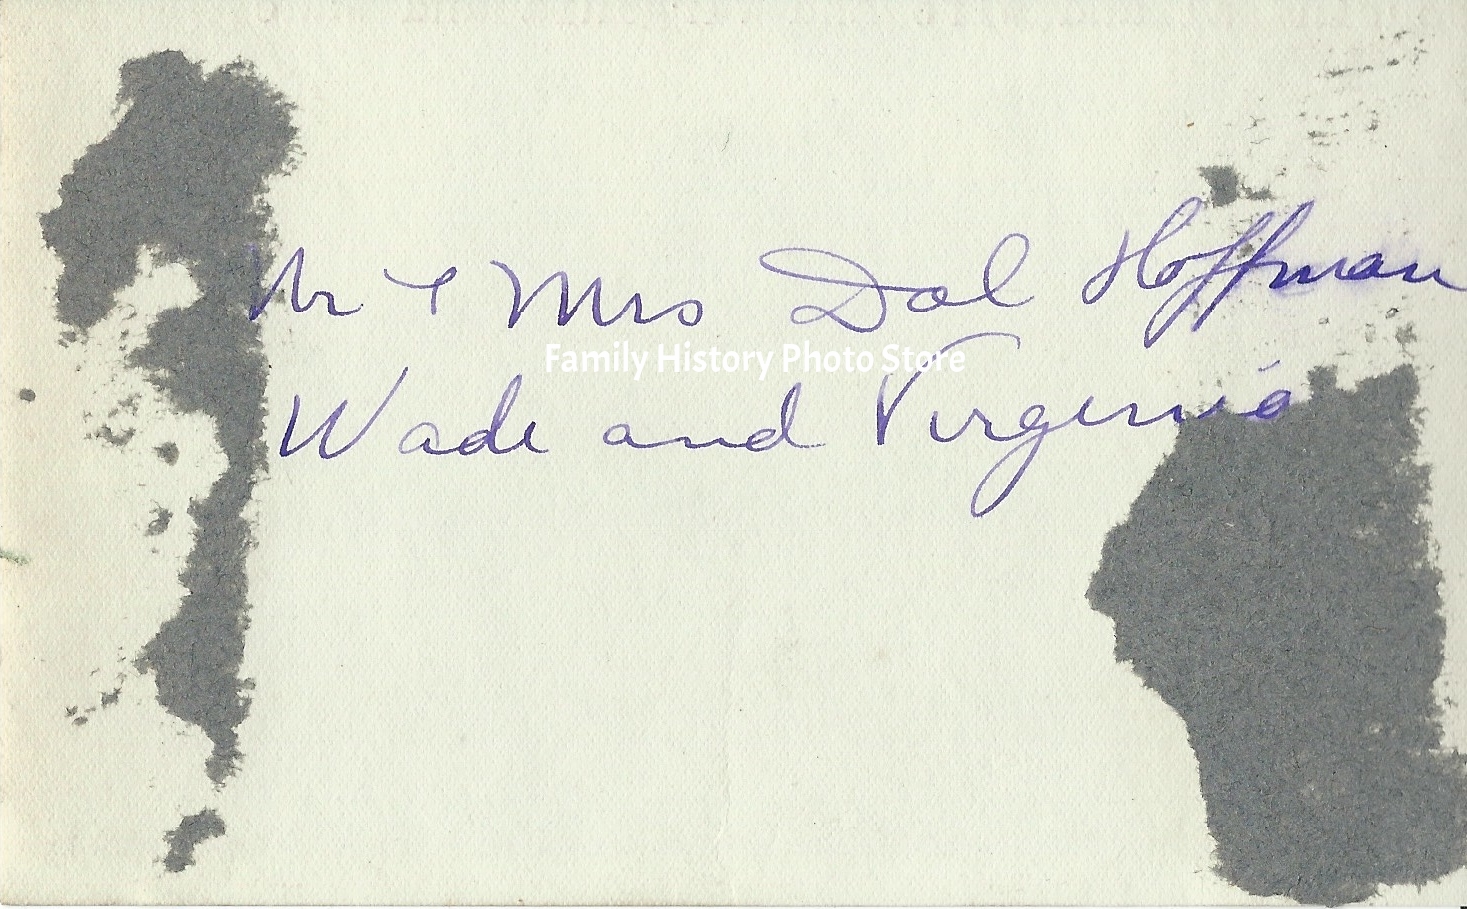 Mr & Mrs Dol Hoffman
Family History Photo Store
Wade and Virginia